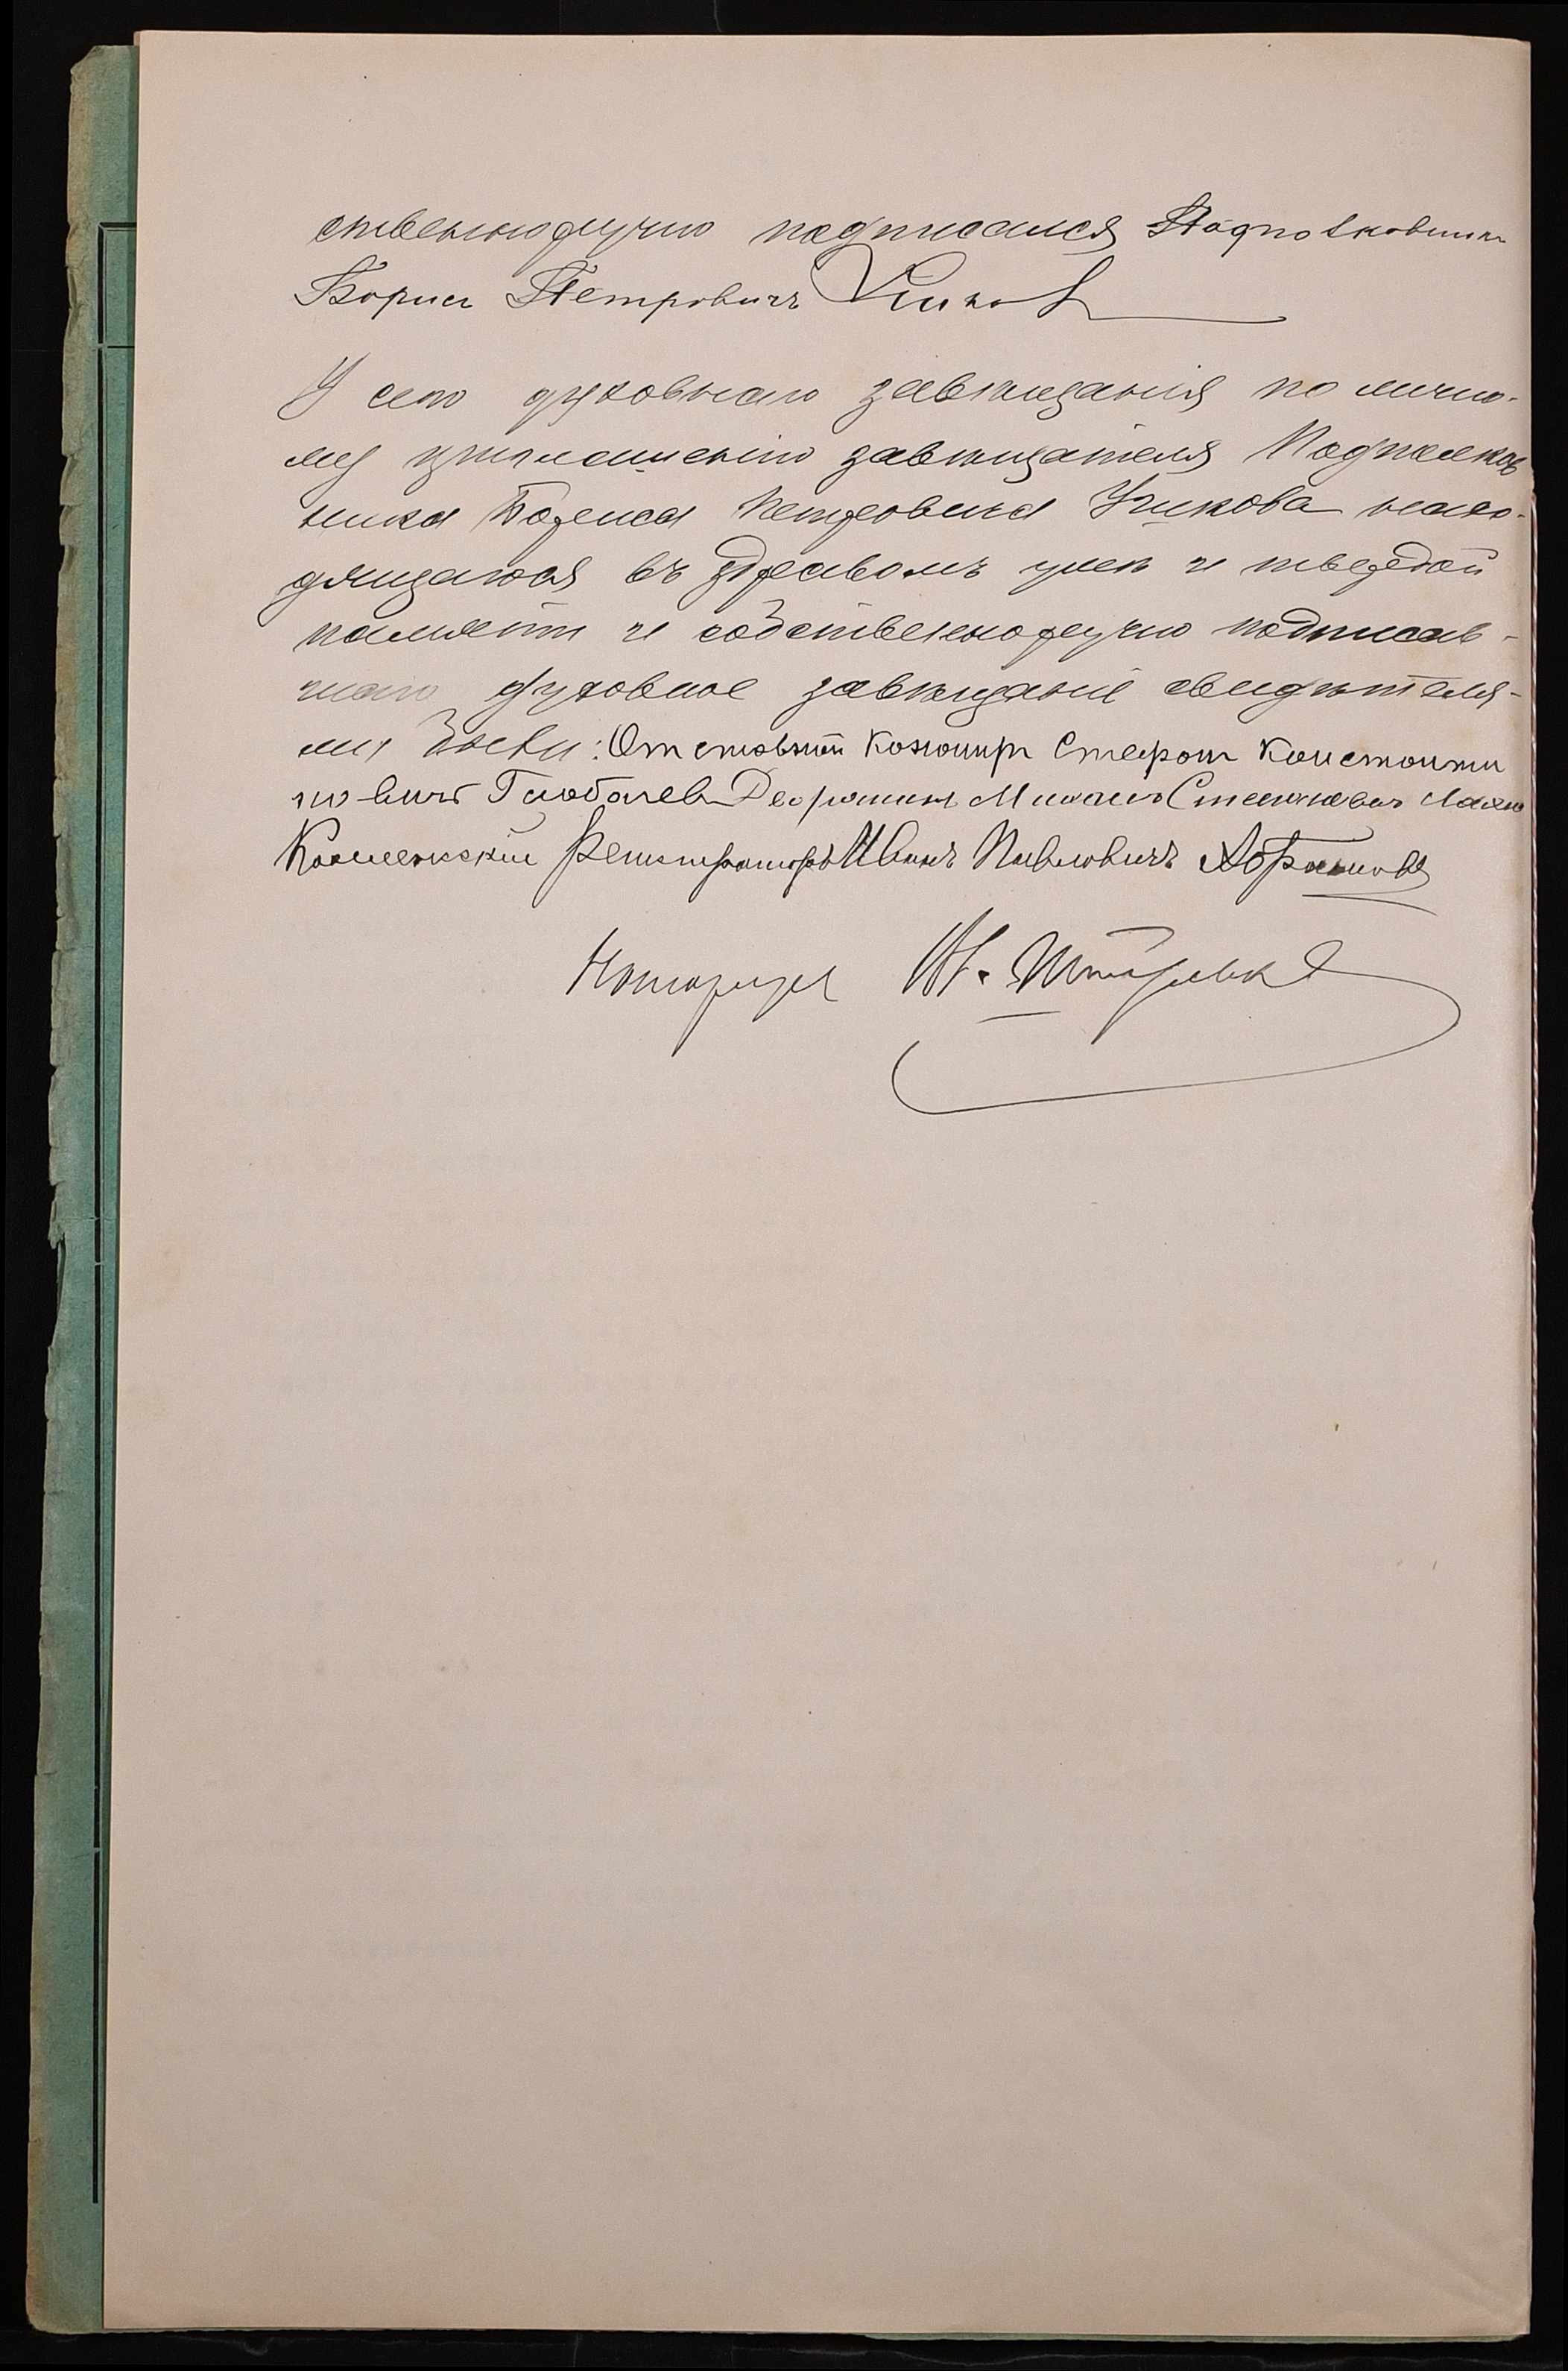 ственноручно подписался Подполковникъ
Борисъ Петровичъ
У сего духовнаго завѣщанія по лично-
му приглашенію завѣщателя Подполков
ника Бориса Петровича Учикова нахо-
дящагося въ здравомъ умѣ и твердой
памяти и собственноручно подписав-
шаго духовное завѣщаніе свидѣтеля-
ми были: Отставной Стефанъ Константи
новичъ Глобачев Дворянинъ Михаилъ
Каменскій Регистраторъ Иванъ Павловичъ
Нотаріусъ